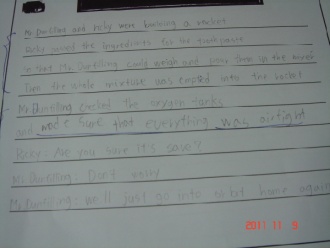 Mr Duntlling and Ricky were building a rocket
Ricky joined the ingredients for the
so that Mr. Duntlling could weigh and them in the
Then the whole mixture was emptied into the rocket
Mr Duntlling checked the oxygen tanks
and made sure that everything was airtight
Ricky: Are you sure it's save?
Mr Duntlling: Don't worry
Mr Duntlling: We'll just go into orbit home again
2011 11 9